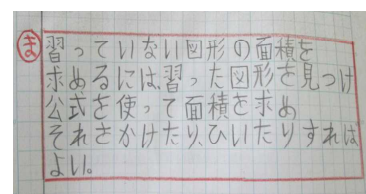 ま 習っていない図形の面積を
求めるには、習った図形を見つけ
公式を使って面積を求め
それさかけたり、ひいたりすれば
よい。